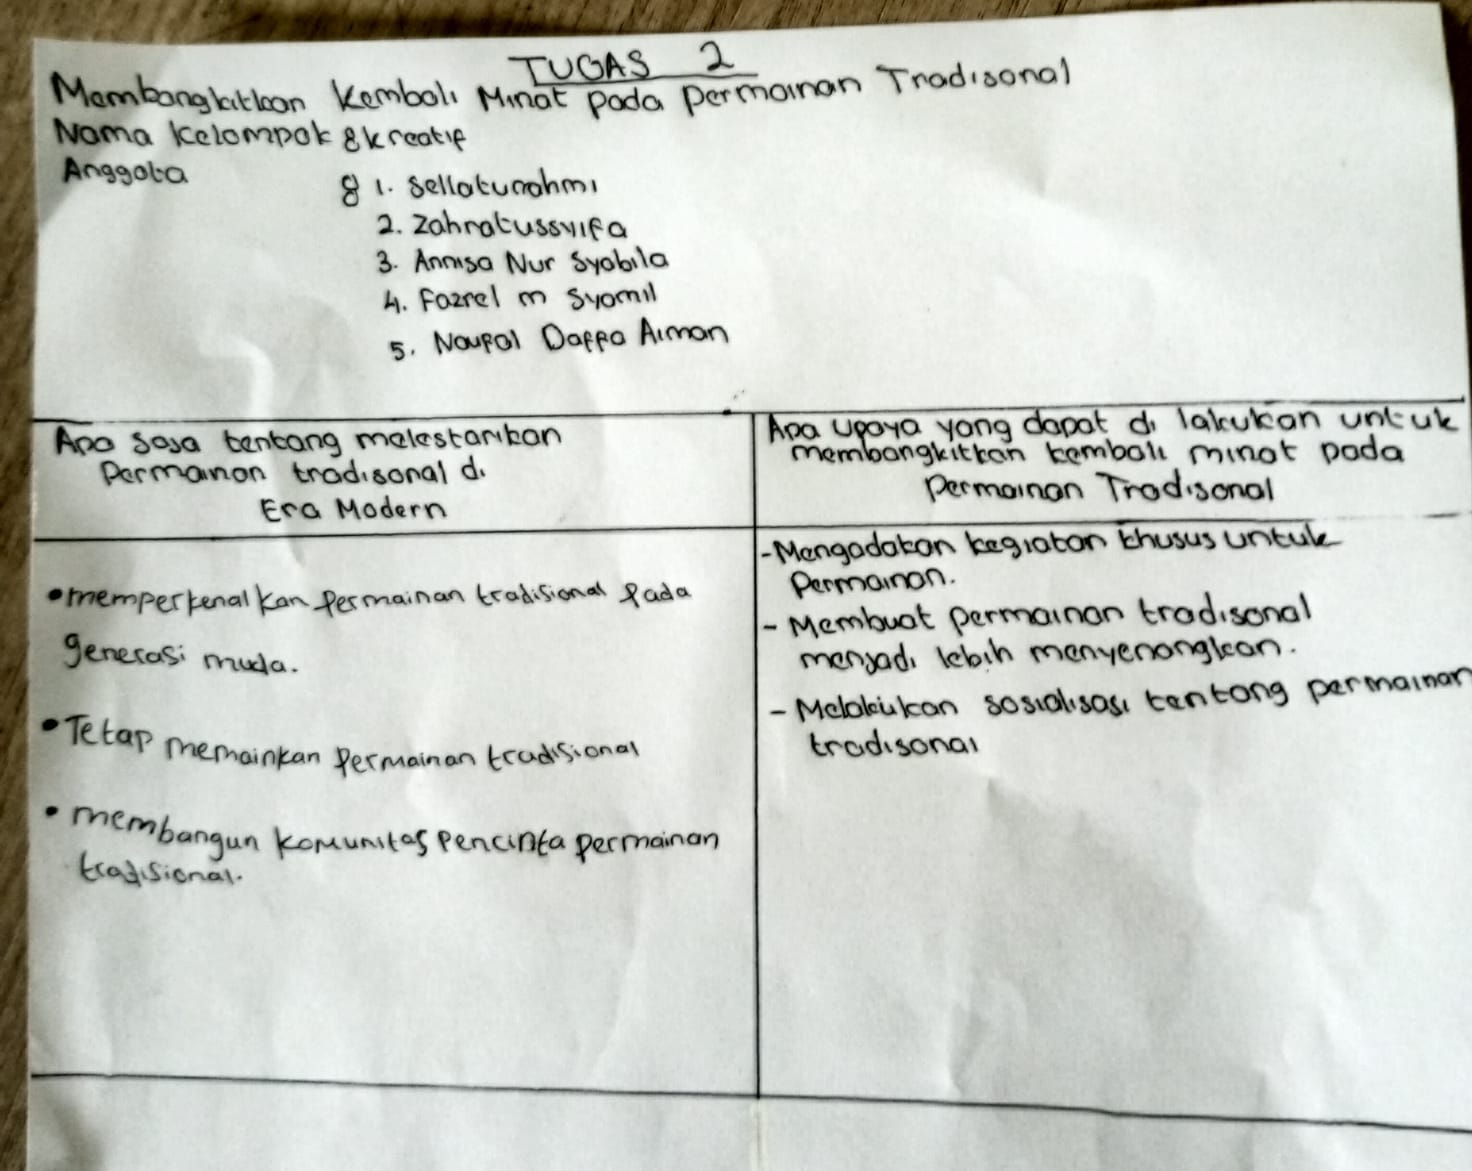 TUGAS 2
Membangkitkan Kembali Minat pada permainan Tradisonal
Nama Kelompok : Kreatif
Anggota : 1. Sellatunahmi
2. Zahratussyifa
3. Annisa Nur Syabila
4. Fazrel m Syamil
5. Naufal Daffa Aiman
Apa saja tentang melestarikan
Permainan tradisonal di
Era Modern
Apa upaya yang dapat di lakukan untuk
membangkitkan kembali minat pada
Permainan Tradisonal
• memperkenalkan permainan tradisional pada
generasi muda.
• Tetap memainkan permainan tradisional
• membangun komunitas pencinta permainan
tradisional.
- Mengadakan kegiatan khusus untuk
Permainan.
- Membuat permainan tradisonal
menjadi lebih menyenangkan.
- Melakukan sosialisasi tentang permainan
tradisonal